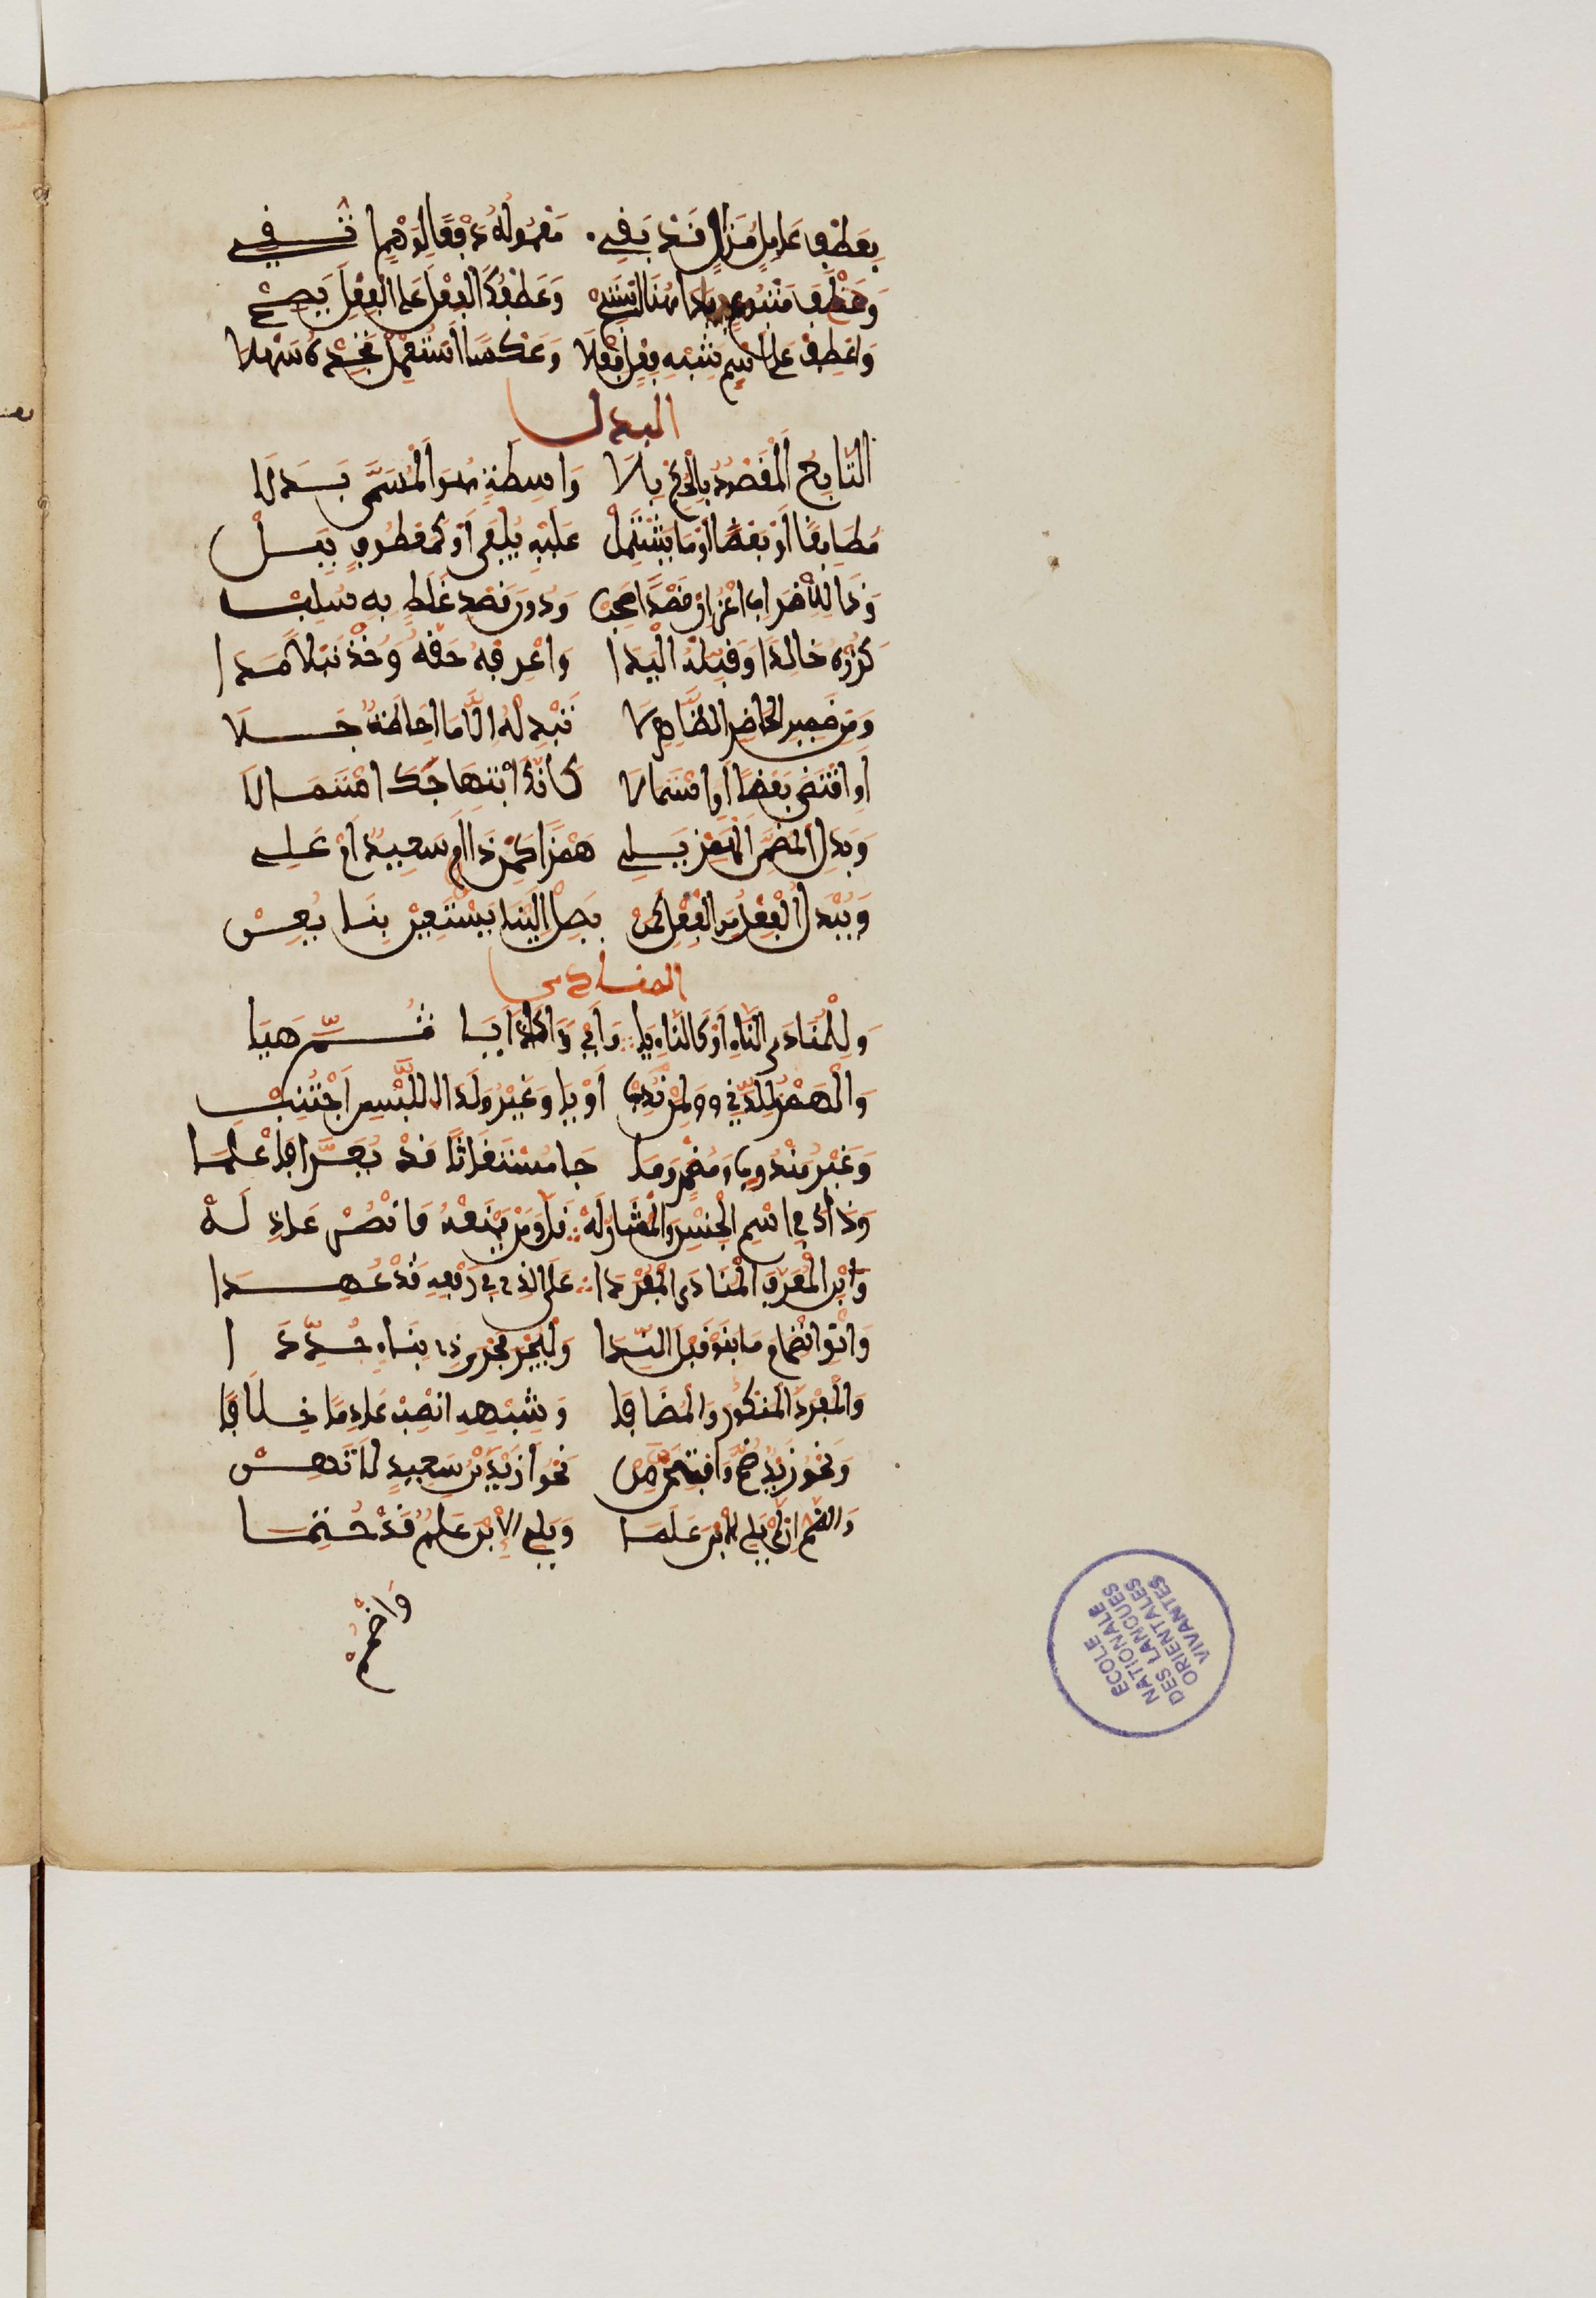 بِعَطْفِ عَامِلٍ مُزَالٍ قَدْ بَقِي مَعْمُولُهُ دَفْعًا لِوَهْمٍ اتُّقِي
وَحَذْفَ مَتْبُوعٍ بَدَا هُنَا اسْتَبِحْ وَعَطْفُكَ الْفِعْلَ عَلَى الْفِعْلِ يَصِحْ
وَاعْطِفْ عَلَى اسْمٍ شِبْهِ فِعْلٍ فِعْلَا وَعَكْسًا اسْتَعْمِلْ تَجِدْهُ سَهْلَا
البدل
التَّابِعُ الْمَقْصُودُ بِالْحُكْمِ بِلَا وَاسِطَةٍ هُوَ الْمُسَمَّى بَدَلَا
مُطَابِقًا أَوْ بَعْضًا أَوْ مَا يَشْتَمِلْ عَلَيْهِ يُلْفَى أَوْ كَمَعْطُوفٍ بِبَلْ
وَذَا لِلْاضْرَابِ اعْزُ إِنْ قَصْدًا صَحِبْ وَدُونَ قَصْدٍ غَلَطٌ بِهِ سُلِبْ
كَزُرْهُ خَالِدًا وَقَبِّلْهُ الْيَدَا وَاعْرِفْهُ حَقَّهُ وَخُذْ نَبْلًا مُدَا
وَمِنْ ضَمِيرِ الْحَاضِرِ الظَّاهِرَ لَا تُبْدِلْهُ إِلَّا مَا إِحَاطَةً جَلَا
أَوِ اقْتَضَى بَعْضًا أَوِ اشْتِمَالَا كَأَنَّكَ ابْتِهَاجَكَ اسْتَمَالَا
وَبَدَلُ الْمُضَمَّنِ الْهَمْزَ يَلِي هَمْزًا كَمَنْ ذَا أَسَعِيدٌ أَمْ عَلِي
وَيُبْدَلُ الْفِعْلُ مِنَ الْفِعْلِ كَمَنْ يَصِلْ إِلَيْنَا يَسْتَعِنْ بِنَا يُعَنْ
المنادى
وَلِلْمُنَادَى النَّاءِ أَوْ كَالنَّاءِ يَا وَأَيْ وَآ كَذَا أَيَا ثُمَّ هَيَا
وَالْهَمْزُ لِلدَّانِي وَوَا لِمَنْ نُدِبْ أَوْ يَا وَغَيْرُ وَا لَدَى اللَّبْسِ اجْتُنِبْ
وَغَيْرُ مَنْدُوبٍ وَمُضْمَرٍ وَمَا جَا مُسْتَغَاثًا قَدْ يُعَرَّى فَاعْلَمَا
وَذَاكَ فِي اسْمِ الْجِنْسِ وَالْمُشَارِ لَهْ قَلَّ وَمَنْ يَمْنَعْهُ فَانْصُرْ عَاذِلَهْ
وَابْنِ الْمُعَرَّفَ الْمُنَادَى الْمُفْرَدَا عَلَى الَّذِي فِي رَفْعِهِ قَدْ عُهِدَا
وَانْوِ انْضِمَامَ مَا بَنَوْا قَبْلَ النِّدَا وَلْيُجْرَ مُجْرَى ذِي بِنَاءٍ جُدِّدَا
وَالْمُفْرَدَ الْمَنْكُورَ وَالْمُضَافَا وَشِبْهَهُ انْصِبْ عَادِمًا خِلَافَا
وَنَحْوَ زَيْدٍ ضُمَّ وَافْتَحَنَّ مِنْ نَحْوِ أَزَيْدُ بْنَ سَعِيدٍ لَا تَهِنْ
وَالضَّمُّ إِنْ لَمْ يَلِ الِابْنُ عَلَمَا وَيَلِ الِابْنَ عَلَمٌ قَدْ حُتِمَا
وَاضْمُمْ
ECOLE
NATIONALE
DES LANGUES
ORIENTALES
VIVANTES